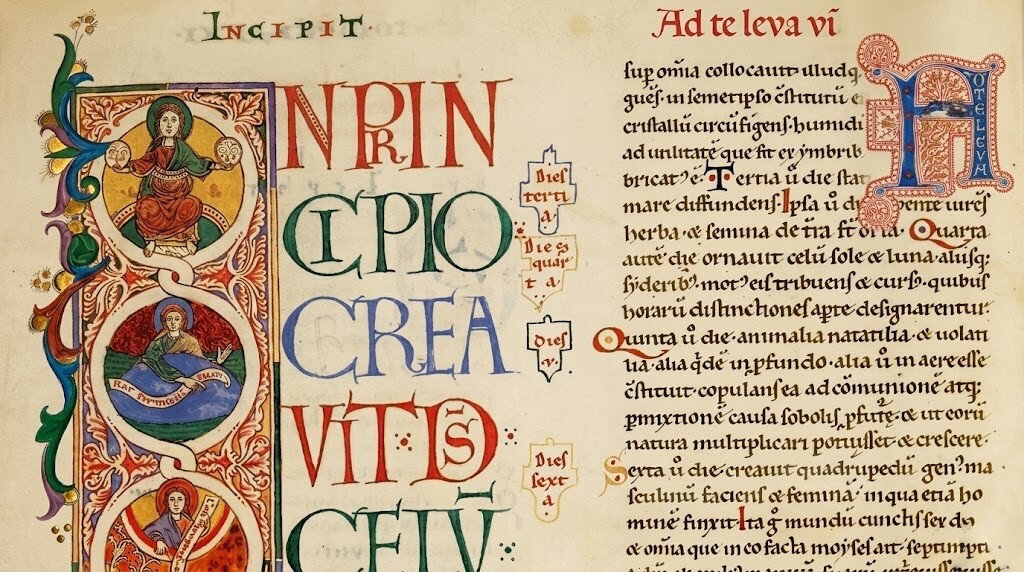 INCIPIT·
Ad te leva vī
NPRIN
CIPIO
CREA
VIT·DS̄
CELV̄
Dies tertia
Dies quarta
Dies v.
Dies sexta
AD TE LEVA
sup om̄ia collocauit illudq
guēs· in semetipso c̄stitutū e
cristallū circūfigens· humidi
ad utilitatē que fit ex ymbrib
bricatꝰ ē· Tertia ū die stat
mare diffundens· Ipsa ū di uirēs
herba· & semina de Quarta
autē die ornauit celū sole & luna· aliisq;
siderib· motꝰ eis tribuens & cursꝰ· quibus
horarū distinctiones apte designarentur·
Quinta ū die· animalia natatilia· & uolati
lia· alia q̄dē in pfundo· alia ū in aere esse
c̄stituit· copulans ea ad cōmunionē atq;
pmixtionē causa sobolis & ut eorū
natura multiplicari potuisset & crescere·
Sexta ū die· creauit quadrupedū genꝰ ma
sculinū faciens & feminā· in qua etiā ho
minē finxit· Ita g mundū cunctis sex di
& omia que in eo facta moyses ait· septimpti